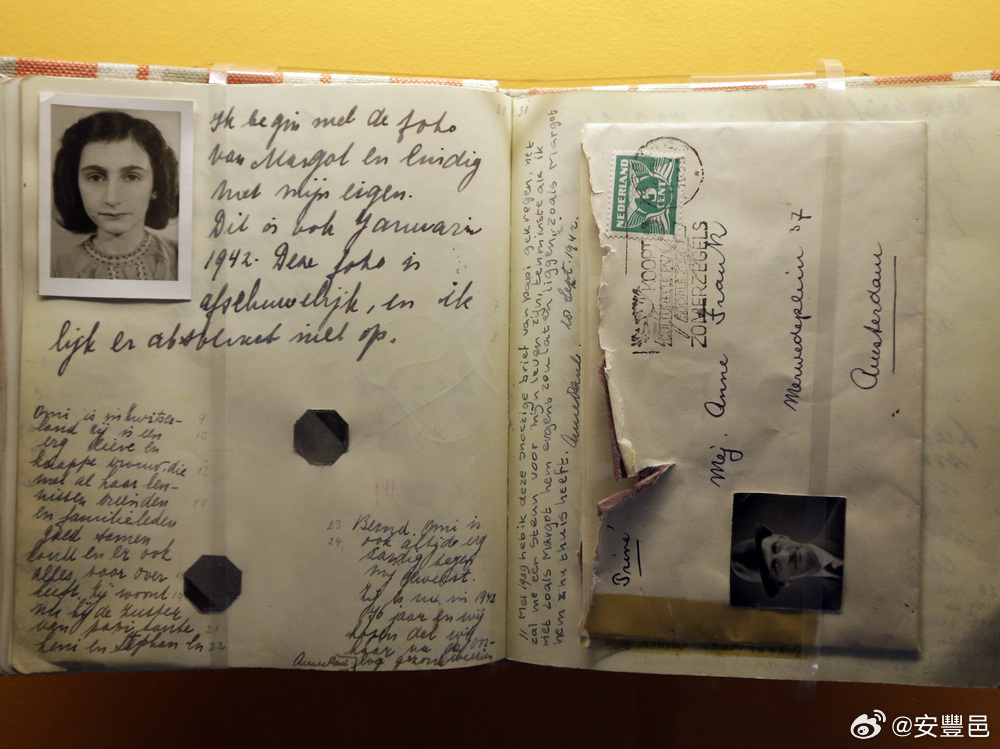 Ik begin met de foto
van Margot en eindig
met mijn eigen.
Dit is ook Januari
1942. Deze foto is
afschuwelijk, en ik
lijk er absoluut niet op.
Omi is in Zwitser-
land zij is een
erg lieve en
knappe vrouw, die
met al haar ken-
nissen vrienden
en familieleden
goed samen
en er ook
alles voor over
heeft. Zij woont
als bij de zuster
van papi tante
Leni en Stephan en
23
24
Bernd. Omi is
ook altijd erg
aardig tegen
mij geweest.
Zij is nu in 1942
76 jaar en wij
hopen dat wij
haar na de oor-
log gezond
Anne Frank
31
11 Mei 1939 heb ik deze snoezige brief van papi gekregen, het
zal me een steun voor mijn leven zijn, tenminste als ik
niet zoals Margot hem ergens zou laten liggen, zoals Margot
hem thuis heeft. Anne Frank. 28 Sept. 1942.
NEDERLAND
5
CENT
KOOPT
ZOMERZEGELS
Mej. Anne Frank
Merwedeplein 37
Amsterdam
Privé
@安豐邑